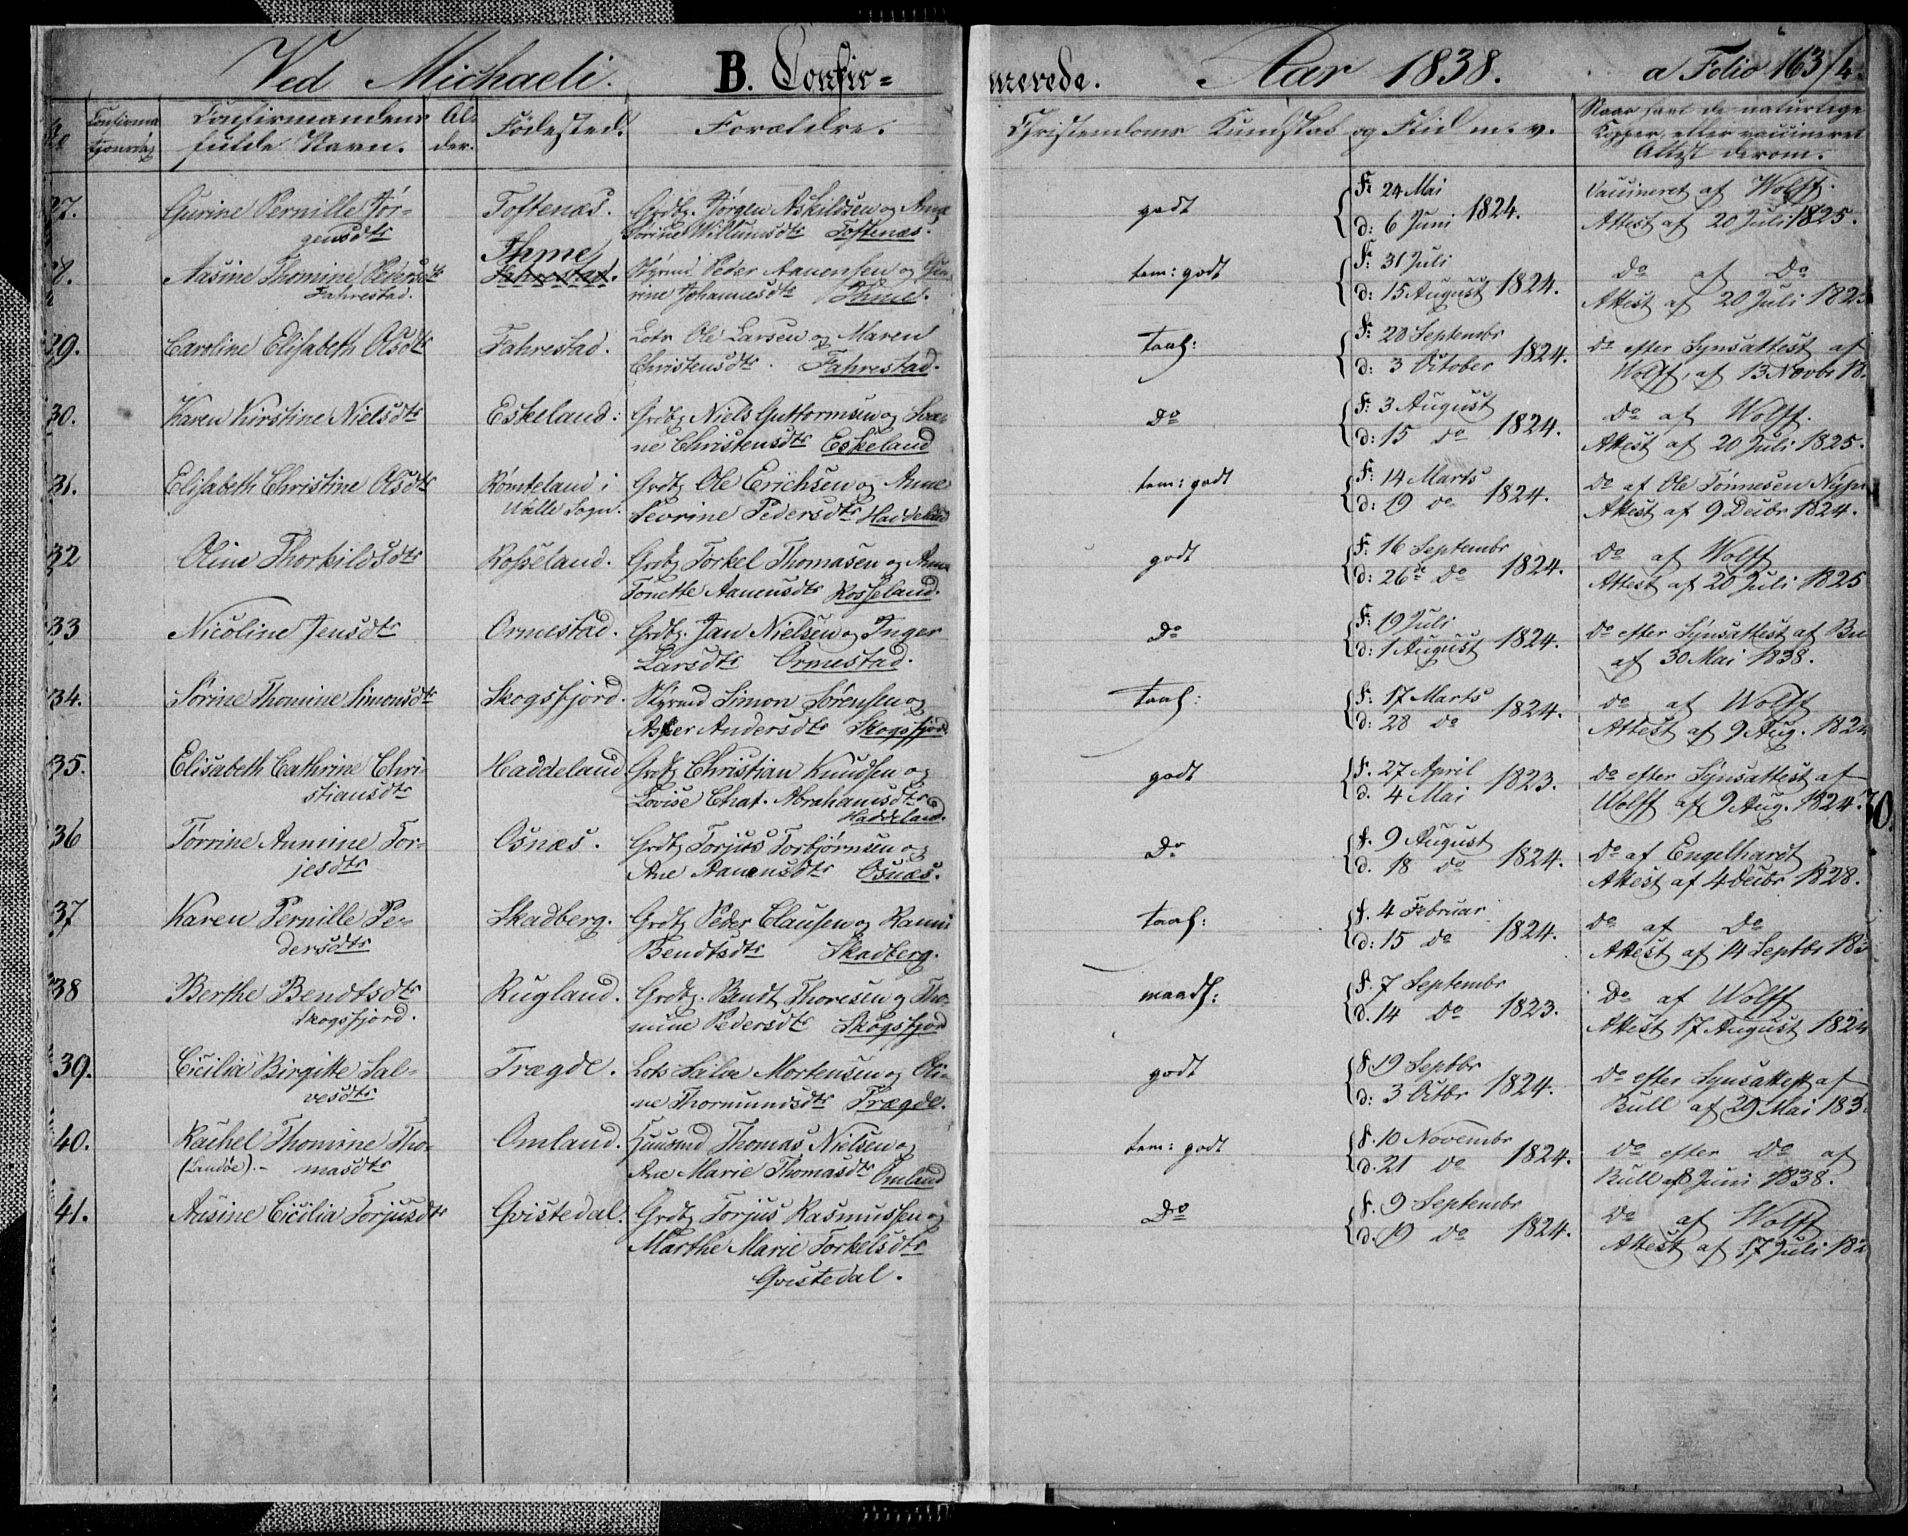 Ved Michaeli. B. Confir=
merede. Aar 1838. a Folio 163/4.
Confirmandens
fulde Navn.
Al-
der.
Fødested.
Forældre.
Christendoms Kundskab og Flid m. v.
Naar havt de naturlige
Kopper, eller vaccineret
Attest derom.
27. Gurine Pernille Jør-
gensdtr
Toftenæs.
Grdbr. Jørgen Askildsen og Anne
Sørine Willumsdtr Toftenæs.
godt
F: 24 Mai
d: 6 Juni 1824.
Vaccineret af Wolff.
Attest af 20 Juli 1825.
28. Aasine Thomine Pedersdtr
Fahrestad.
Ihme
Fahrestad.
Styrmd Peder Aanensen og Gu-
rine Johannesdtr Ihme.
tem: godt
F: 31 Juli
d: 15 August 1824.
do af Do
Attest af 20 Juli 1825
29. Caroline Elisabeth Olsdtr
Fahrestad.
Lots Ole Larsen og Maren
Christensdtr. Fahrestad.
taal:
F: 28 Septembr
d: 3 October 1824.
do efter Synsattest af
Wolff, af 13 Novbr 18
30. Karen Kirstine Nielsdtr
Eskeland:
Grdbr Niels Guttormsen og Soe-
ne Christensdtr Eskeland
do
F: 3 August
d: 15 do 1824.
do af Wolff.
Attest af 20 Juli 1825.
31. Elisabeth Christine Olsdtr
Rømteland i
Walle Sogn.
Grdbr Ole Erichsen og Anne
Sevrine Pedersdtr Haddeland
tem: godt
F: 14 Marts
d: 19 do 1824.
do af Ole Tønnesen
Attest af 9 Decbr 1824.
32 Oline Thorkildsdtr
Rosseland.
Grdbr Torkel Thomasen og Anne
Tonette Aanensdtr Rosseland.
godt
F: 16 Septembr
d: 26de do 1824.
do af Wolff
Attest af 20 Juli 1825
33 Nicoline Jensdtr
Ormestad.
Grdbr. Jan Nielsen og Inger
Larsdtr Ormestad.
Do
F: 19 Juli
d: 1 August 1824.
do efter Synsattest af Bu
af 30 Mai 1838.
34. Sørine Thomine Simonsdtr
Skogsfjord.
Styrmd Simon Sørensen og
Andersdtr Skogsfjord.
taal:
F: 17 Marts
d: 28 do 1824.
do af Wolff
Attest af 9 Aug. 1824
35. Elisabeth Cathrine Chri-
stiansdtr
Haddeland
Grdbr Christian Knudsen og
Lovise Chat. Abrahamsdtr
Haddeland.
godt
F. 27 April
d. 4 Mai 1823.
do efter Synsattest af
Wolff af 9 Aug. 1824.
36 Torrine Annine Tor-
jesdtr
Osnæs.
Grdbr Torjus Torbjørnsen og
Ane Aanensdtr Osnæs.
Do
f. 9 August
d. 18 do 1824.
do af Engelhardt
Attest af 4 Decbr 1828.
37 Karen Pernille Pe-
dersdtr
Skadberg.
Grdbr Peder Clausen og Ranni
Bendtsdtr Skadberg.
taal:
f. 4 Februar
d: 15 do 1824.
do af do
Attest af 14 Septbr 18
38 Berthe Bendtsdtr
Skogsfjord.
Rugland.
Grdbr. Bendt Thoresen og Tho-
mine Pedersdtr Skogsfjord
maadl:
f. 7 Septembr
d. 14 do 1823.
Do af Wolff
Attest 17 August 1824
39. Cicilia Birgitte Sal-
vesdtr
Trægde.
Lots Salve Mortensen og Oli-
ne Thormundsdtr Trægde.
godt
f. 19 Septbr
d: 3 Octbr 1824.
do efter Synsattest af
Bull af 29 Mai 183
40. Rachel Thomine Tho-
(Landøe).- masdtr
Omland.
Huusmd Thomas Nielsen og
Ane Marie Thomasdtr Omland
tem: godt
f. 10 Novembr
d. 21 do 1824.
do efter Do af
Bull af 8 Juni 1838.
41. Ausine Cicilia Torjusdtr
Gvistedal.
Grdbr Torjus Rasmussen og
Marthe Marie Torkelsdtr
Gvistedal.
Do
f. 9 Septembr
d. 19 do 1824.
Do af Wolff
Attest af 17 Juli 18